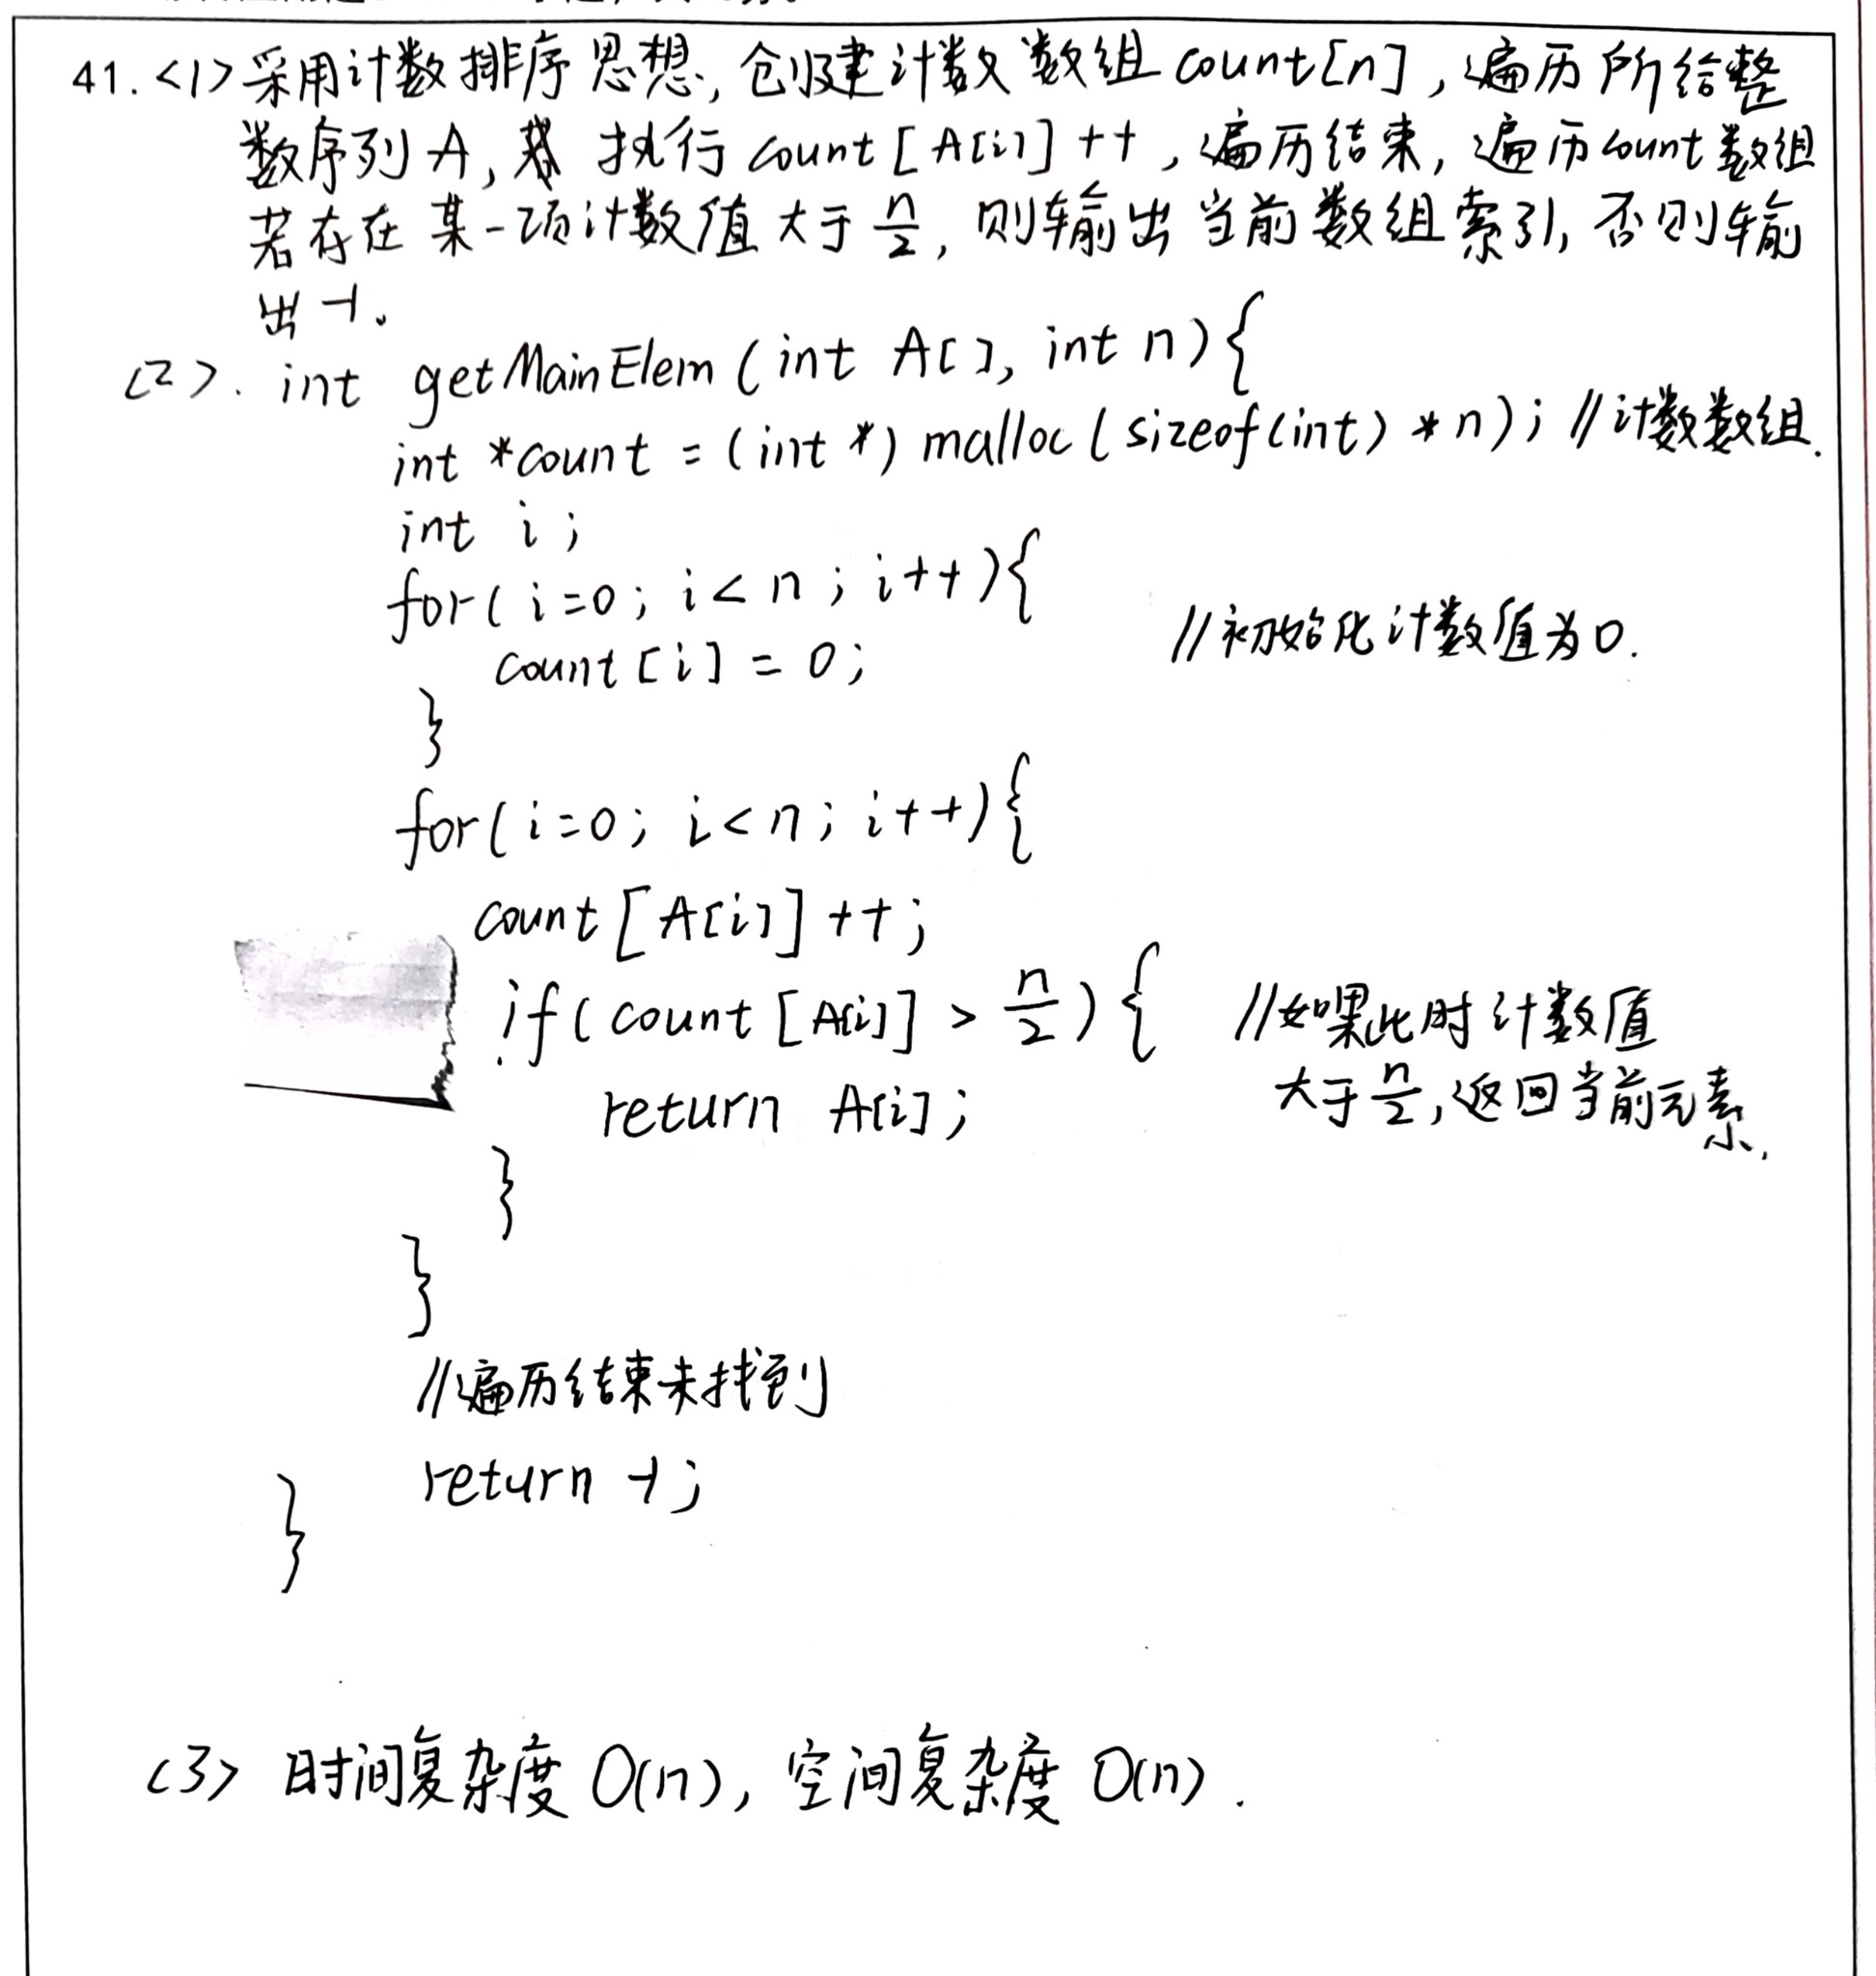 41. <1> 采用计数排序思想, 创建计数数组 count[n], 遍历所给整
数序列 A, 执行 count[A[i]]++, 遍历结束, 遍历 count 数组
若存在某一项计数值大于 n/2, 则输出当前数组索引, 否则输
出 -1。
(2). int getMainElem(int A[], int n){
int *count = (int *) malloc(sizeof(int) * n); //计数数组.
int i;
for(i=0; i<n; i++){
//初始化计数值为0.
count[i] = 0;
}
for(i=0; i<n; i++){
count[A[i]]++;
if(count[A[i]] > n/2){ //如果此时计数值
return A[i]; 大于 n/2, 返回当前元素.
}
}
//遍历结束未找到
return -1;
}
(3) 时间复杂度 O(n), 空间复杂度 O(n).